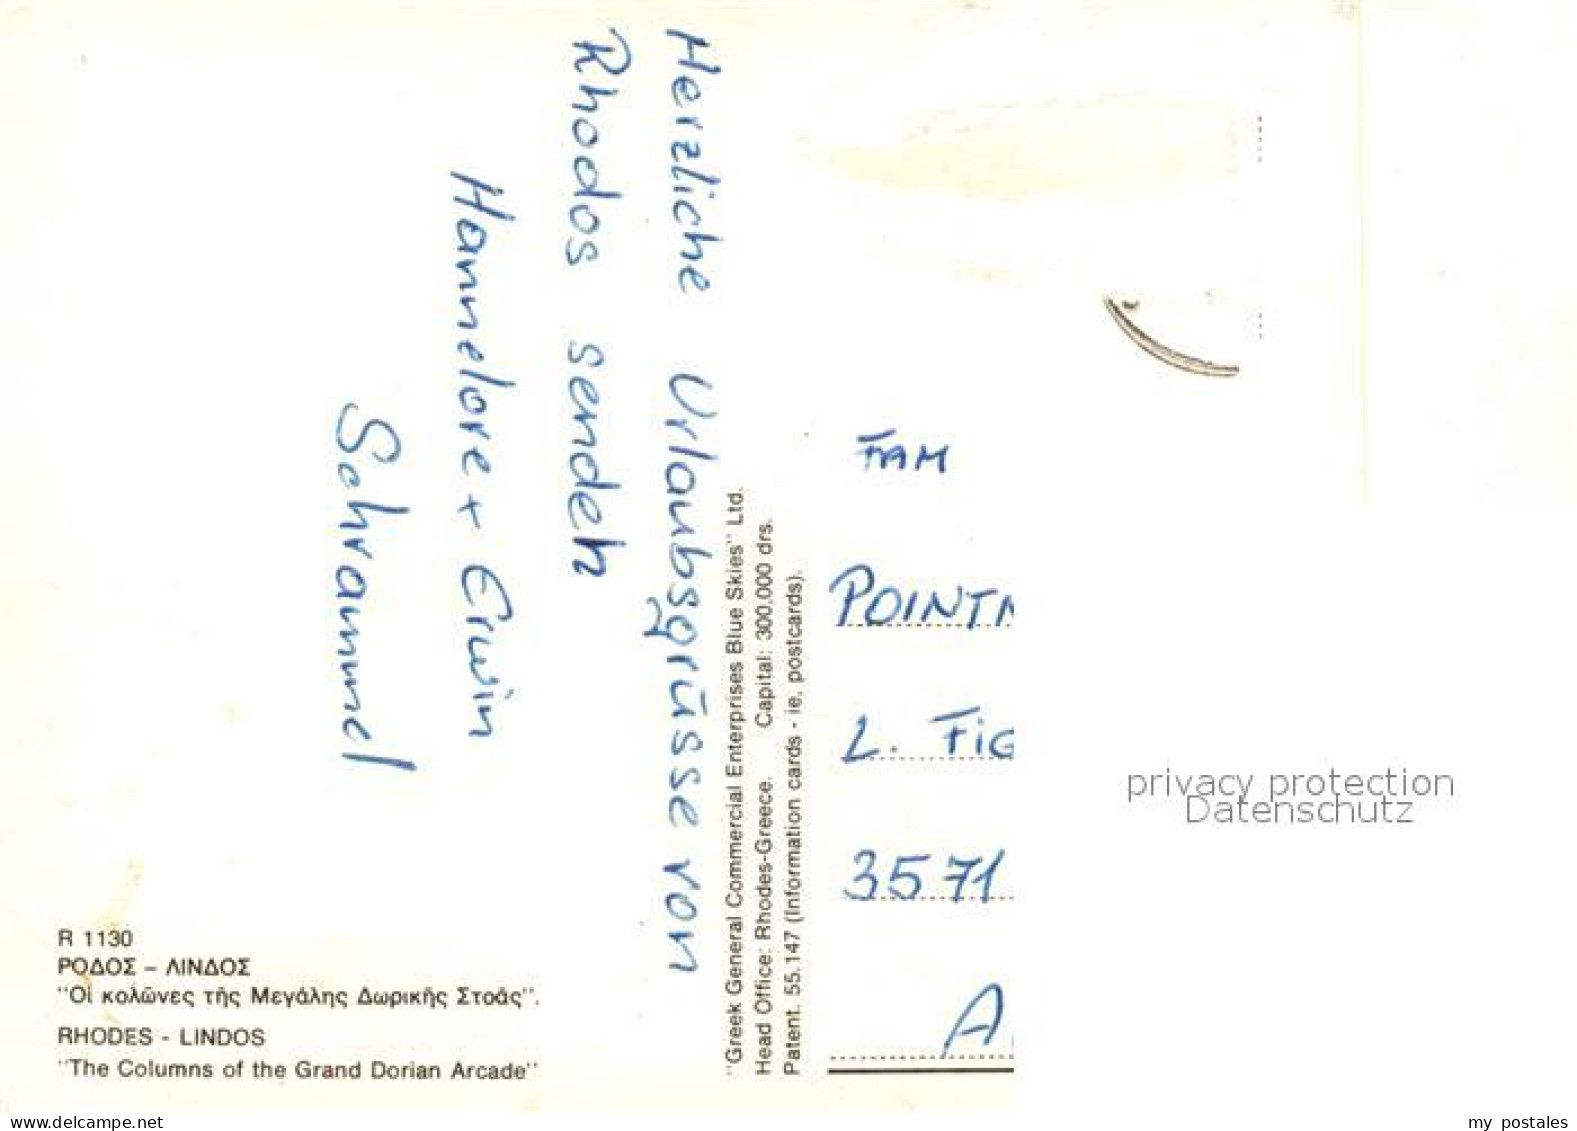 Herzliche Urlaubsgrüsse von
Rhodos senden
Hannelore + Erwin
Schrammel
R 1130
ΡΟΔΟΣ – ΛΙΝΔΟΣ
"Οἱ κολῶνες τῆς Μεγάλης Δωρικῆς Στοᾶς".
RHODES - LINDOS
"The Columns of the Grand Dorian Arcade"
"Greek General Commercial Enterprises Blue Skies" Ltd.
Head Office: Rhodes-Greece. Capital: 300.000 drs.
Patent. 55.147 (Information cards - ie. postcards).
FAM
L. FIG
3571
A
privacy protection
Datenschutz
my postales
www.delcampe.net